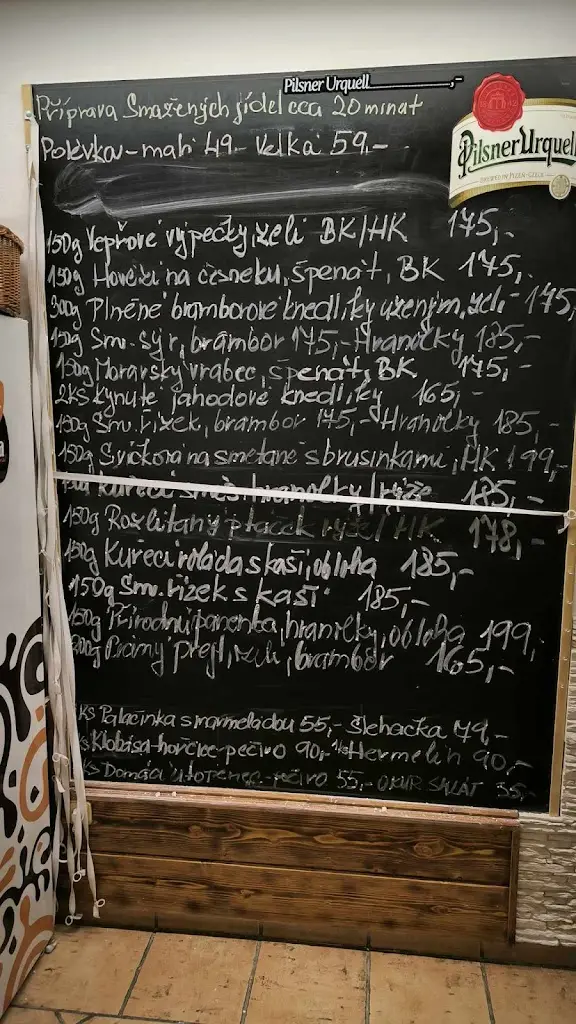 Pilsner Urquell ,-
Příprava Smažených jídel cca 20 minut
Polévka - malá 49,- Velká 59,-
Pilsner Urquell
150g Vepřové výpečky, zelí BK/HK 175,-
150g Hovězí na česneku, špenát, BK 175,-
300g Plněné bramborové knedlíky uzeným, zelí - 175,-
150g Sm. sýr, brambor 175,- Hranolky 185,-
150g Moravský vrabec, špenát, BK 175,-
2ks kynuté jahodové knedlíky 165,-
150g Smv. Řízek, brambor 175,- Hranolky 185,-
150g Svíčková na smetaně s brusinkami, HK 199,-
Kuřecí směs, hranolky/rýže 185,-
150g Rozlítaný ptáček rýže/HK 178,-
150g Kuřecí roláda s kaší, obloha 185,-
150g Smv. Řízek s kaší 185,-
150g Přírodní panenka, hranolky, obloha 199,-
Prejt, zelí, brambor 165,-
ks Palačinka s marmeládou 55,- Šlehačka 49,-
ks Klobása - hořčice - pečivo 90,- 1ks Hermelín 90,-
ks Domácí utopenec - pečivo 55,- OKUR SALÁT 35,-